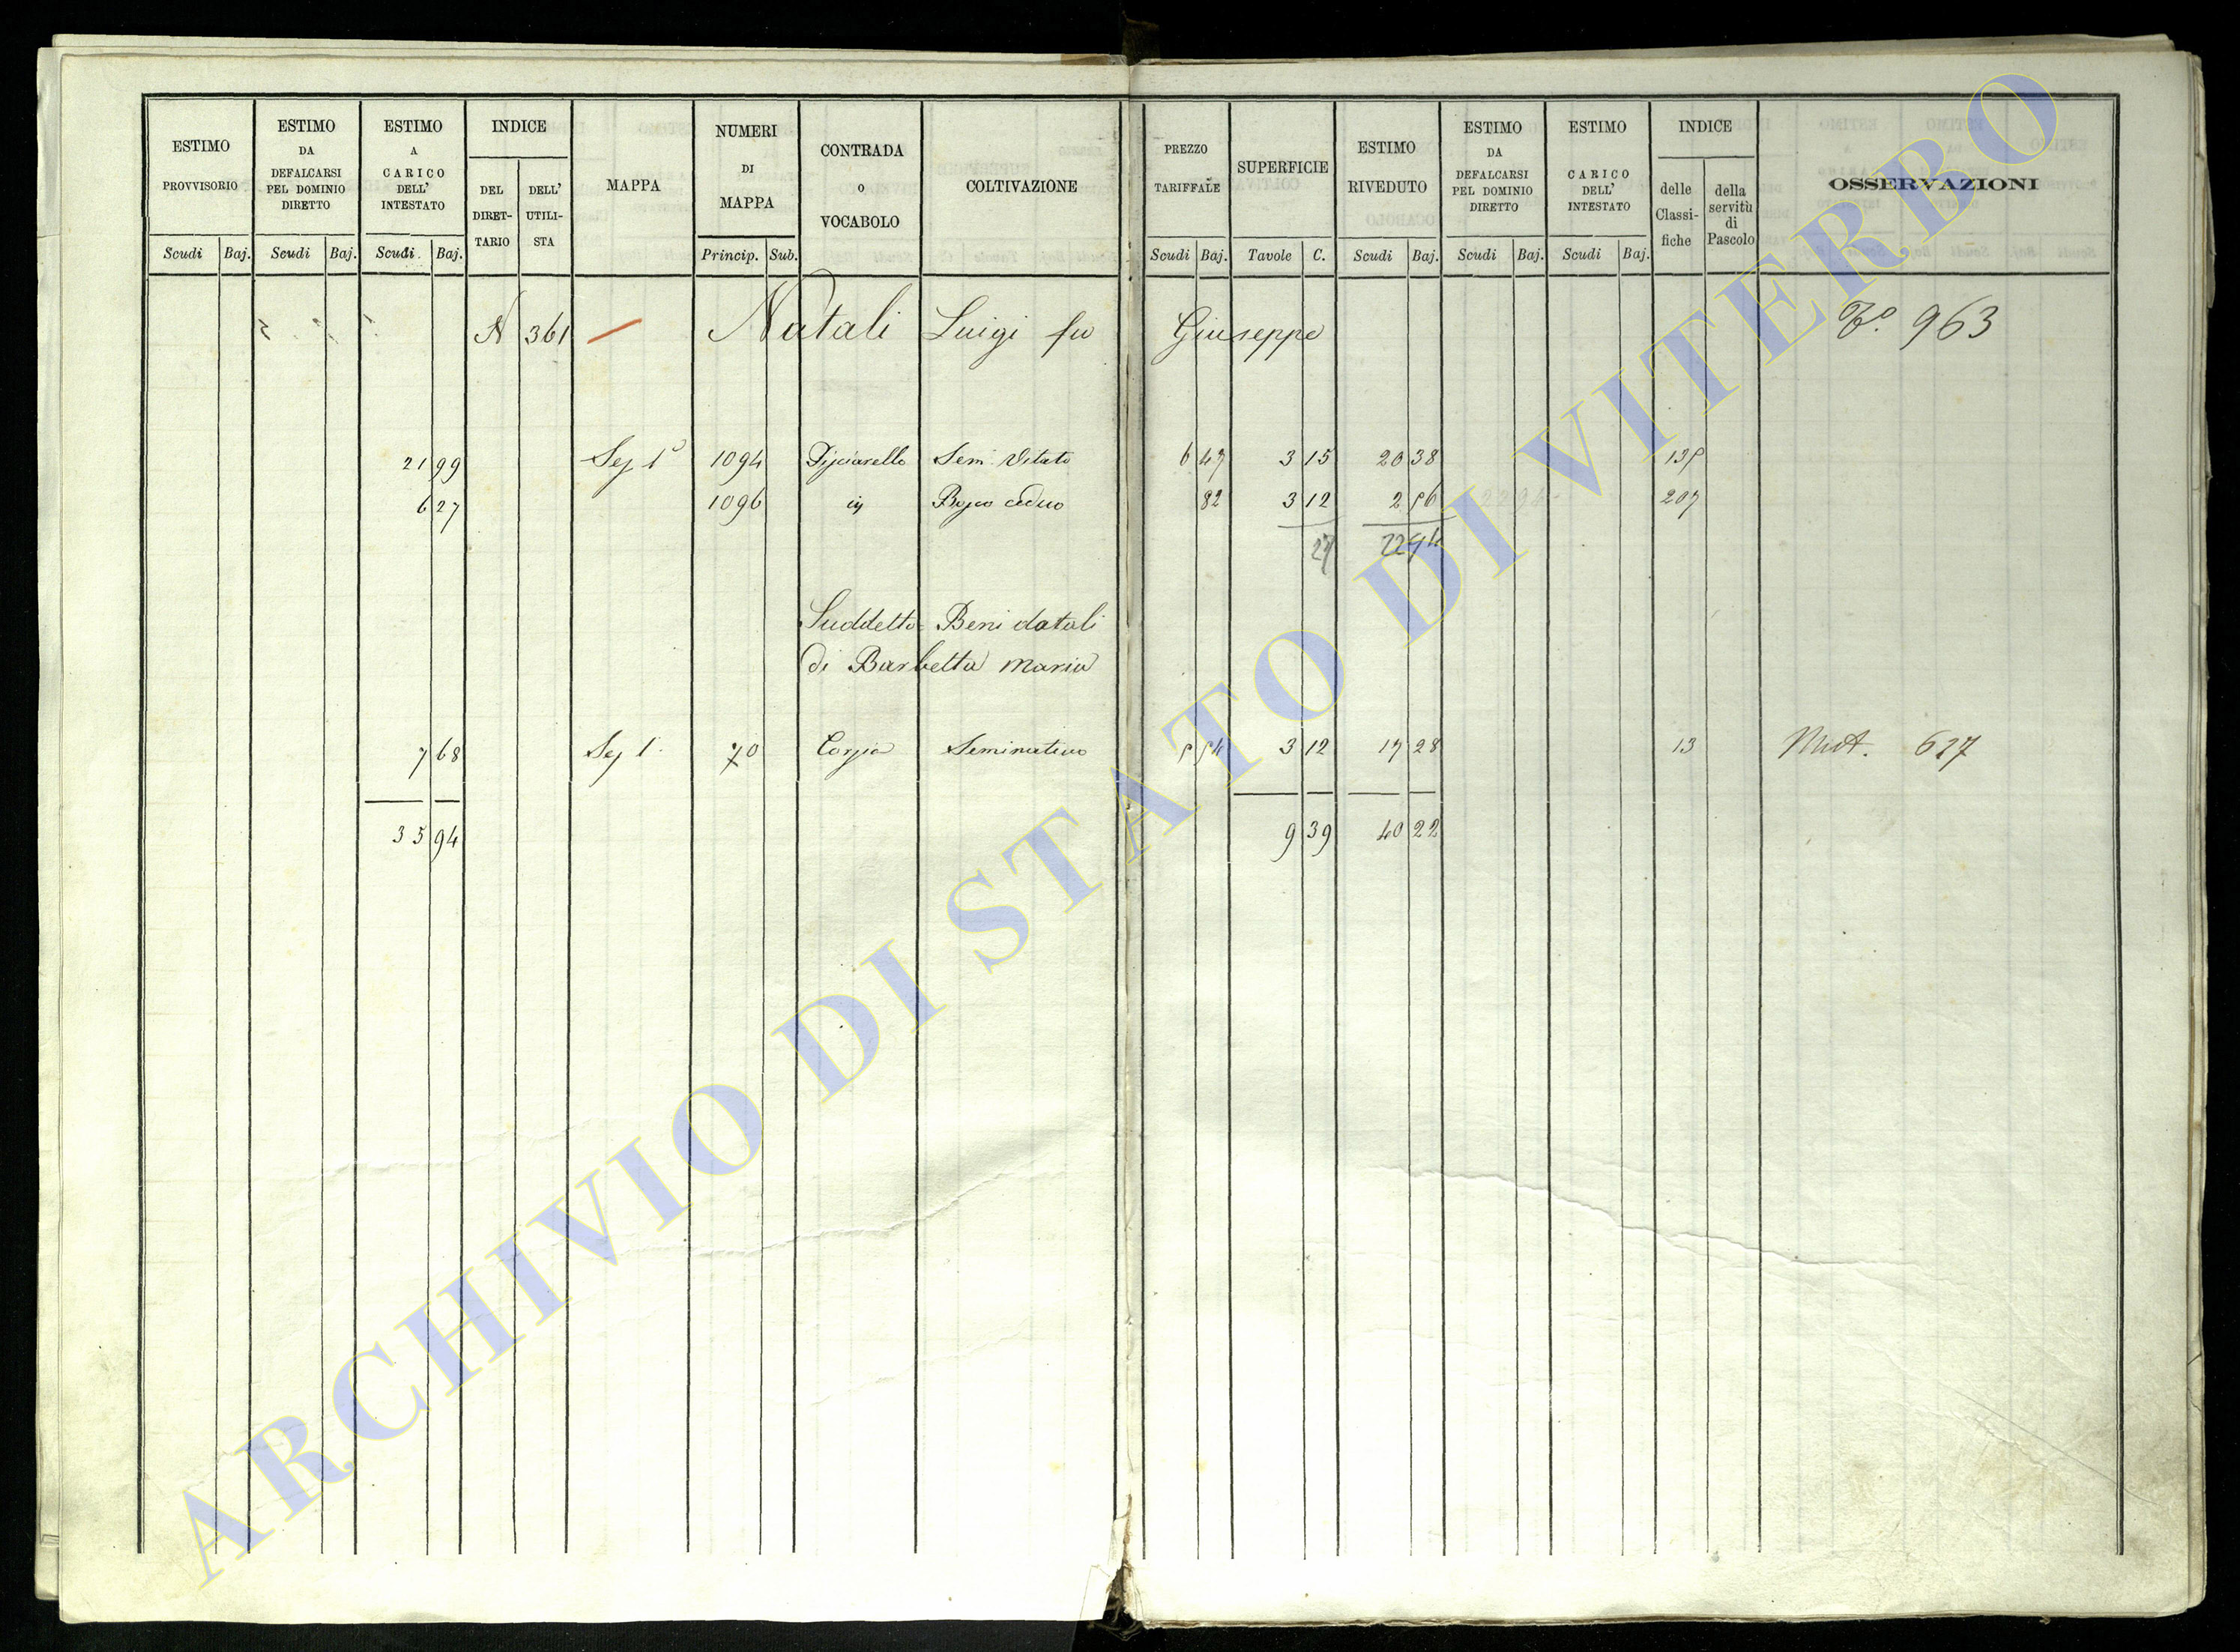 ESTIMO PROVVISORIO
ESTIMO DA DEFALCARSI PEL DOMINIO DIRETTO
ESTIMO A CARICO DELL' INTESTATO
INDICE
DEL DIRET-TARIO
DELL' UTILI-STA
MAPPA
NUMERI DI MAPPA
CONTRADA O VOCABOLO
COLTIVAZIONE
PREZZO TARIFFALE
SUPERFICIE
ESTIMO RIVEDUTO
ESTIMO DA DEFALCARSI PEL DOMINIO DIRETTO
ESTIMO A CARICO DELL' INTESTATO
INDICE
delle Classi-fiche
della servitù di Pascolo
OSSERVAZIONI
Scudi Baj. Scudi Baj. Scudi. Baj. Princip. Sub. Scudi Baj. Tavole C. Scudi Baj. Scudi Baj. Scudi Baj.
N 361 Natali Luigi fu Giuseppe 963
21 99 Sez 1ª 1094 Sem. Vitato 6 47 3 15 20 38 135
6 27 1096 Bosco ceduo 82 3 12 2 56 207
27 22 94
Suddetto = Beni dotali
di Barbetta Maria
7 68 Sez 1ª 70 Seminativo 5 54 3 12 17 28 13 Mut. 627
35 94 9 39 40 22
ARCHIVIO DI STATO DI VITERBO